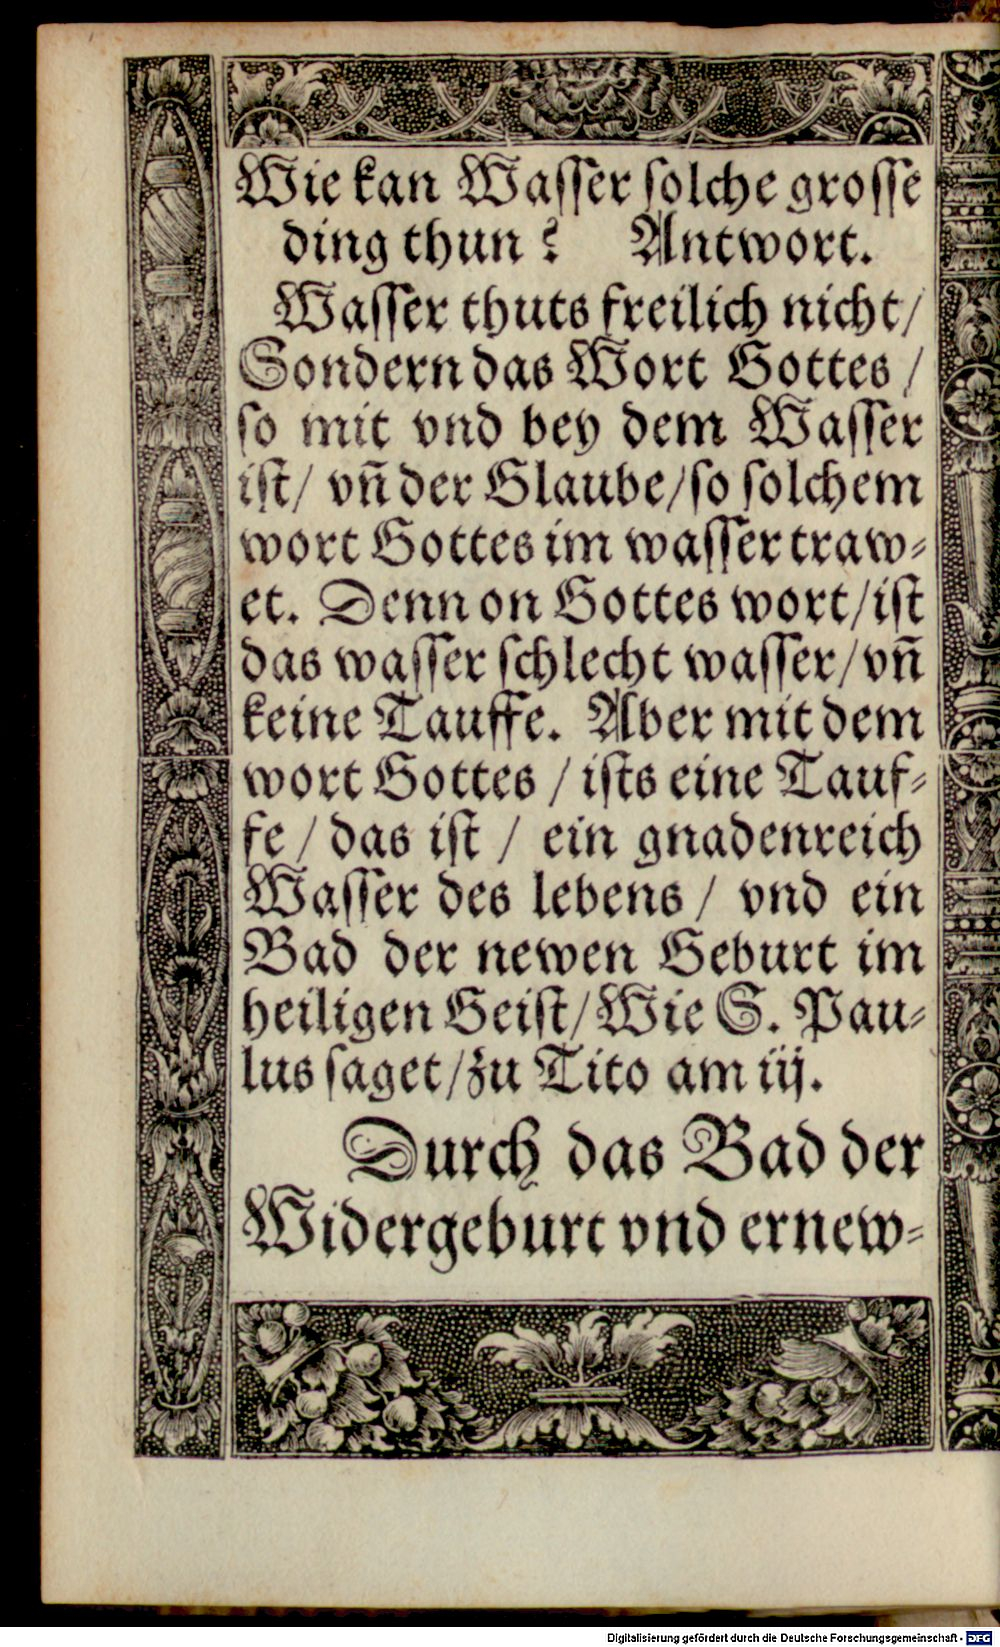 Wie kan Wasser solche grosse
ding thun? Antwort.
Wasser thuts freilich nicht/
Sondern das Wort Gottes /
so mit vnd bey dem Wasser
ist/ vñ der Glaube/so solchem
wort Gottes im wasser traw⸗
et. Denn on Gottes wort/ist
das wasser schlecht wasser/vñ
keine Tauffe. Aber mit dem
wort Gottes / ists eine Tauf⸗
fe / das ist / ein gnadenreich
Wasser des lebens / vnd ein
Bad der newen Geburt im
heiligen Geist/Wie S. Pau⸗
lus saget/zu Tito am iij.
Durch das Bad der
Widergeburt vnd ernew⸗
Digitalisierung gefördert durch die Deutsche Forschungsgemeinschaft - DFG